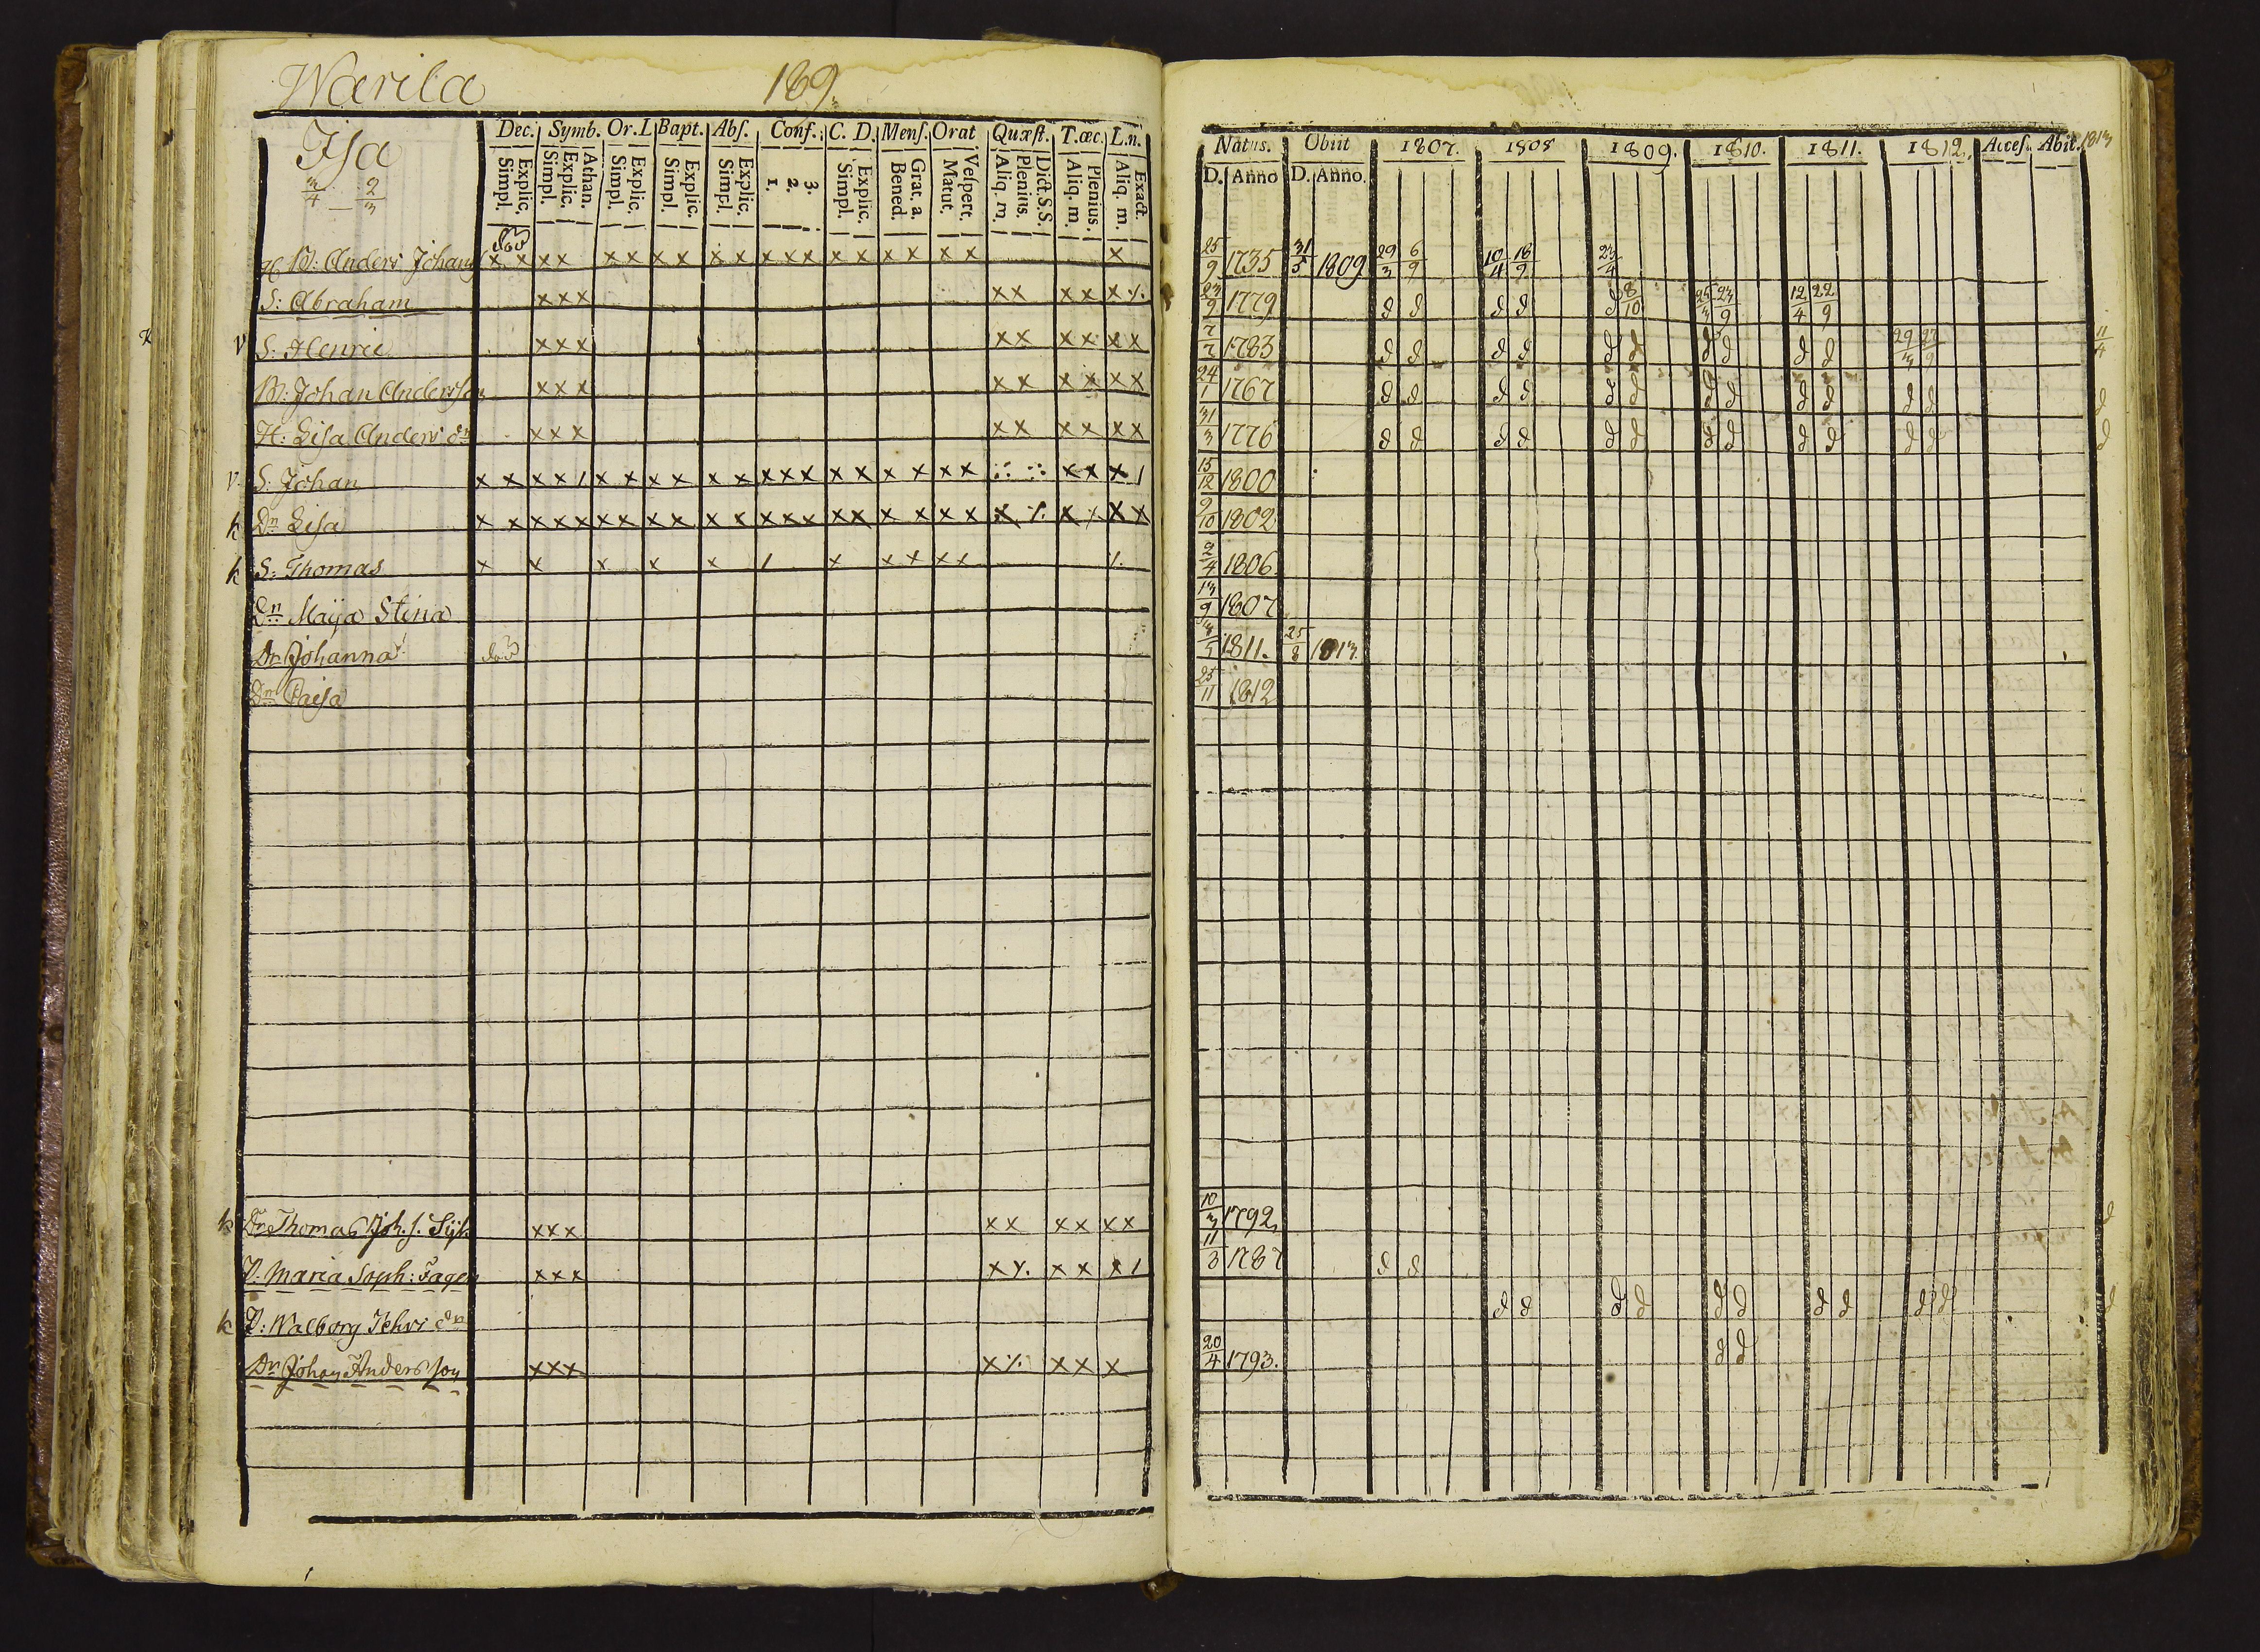 Wärilä 189.
Isa
3/4 — 2/3
Dec. Symb. Or. L Bapt. Abſ. Conf. C. D. Menſ. Orat Quæſt. T. œc. L. n.
Simpl. Explic. Simpl. Explic. Athan. Simpl. Explic. Simpl. Explic. Simpl. Explic. 1. 2. 3. Simpl. Explic. Bened. Grat. a. Matut. Veſpert. Aliq. m. Plenius. Dict. S. S. Aliq. m. Plenius. Aliq. m. Exact.
Natus. Obiit 1807. 1808 1809. 1810. 1811. 1812. Acceſ. Abit. 1813
D. Anno D. Anno.
Anders Johans x x x x x x x x x x x x x x x x x x x x 25/9 1735 31/5 1809 29/3 6/9 10/4 18/9 23/4
S: Abraham x x x x x x x x ⁒ 23/9 1779 d d d d d 8/10 25/3 23/9 12/4 22/9
v S: Henric x x x x x x x x x 7/7 1783 d d d d d d d d d d 29/3 27/9 11/4
M: Johan Andersson x x x x x x x x x 24/1 1767 d d d d d d d d d d d d d
H: Lisa Anders dr x x x x x x x x x 31/3 1776 d d d d d d d d d d d d d
v S: Johan x x x x / x x x x x x x x x x x x x x x x x x / 15/12 1800
k Dr Lisa x x x x x x x x x x x x x x x x x x x x x ⁒ x ⁒ x x 9/10 1802
k S: Thomas x x x x x / x x x x x ⁒ 2/4 1806
Dr Maija Stina 13/9 1807
Dr Johanna död 1811. 25/8 1813
Dr Caisa 25/11 1812
k Dr Thomas Joh. s. x x x x x x x x x 10/3 1792 d
P: Maria Soph: Fager x x x x ⁒ x x x / 11/3 1787 d d
k P: Walborg d d d d d d d d d d d
Dr Johan Andersson x x x x ⁒ x x x 20/4 1793. d d